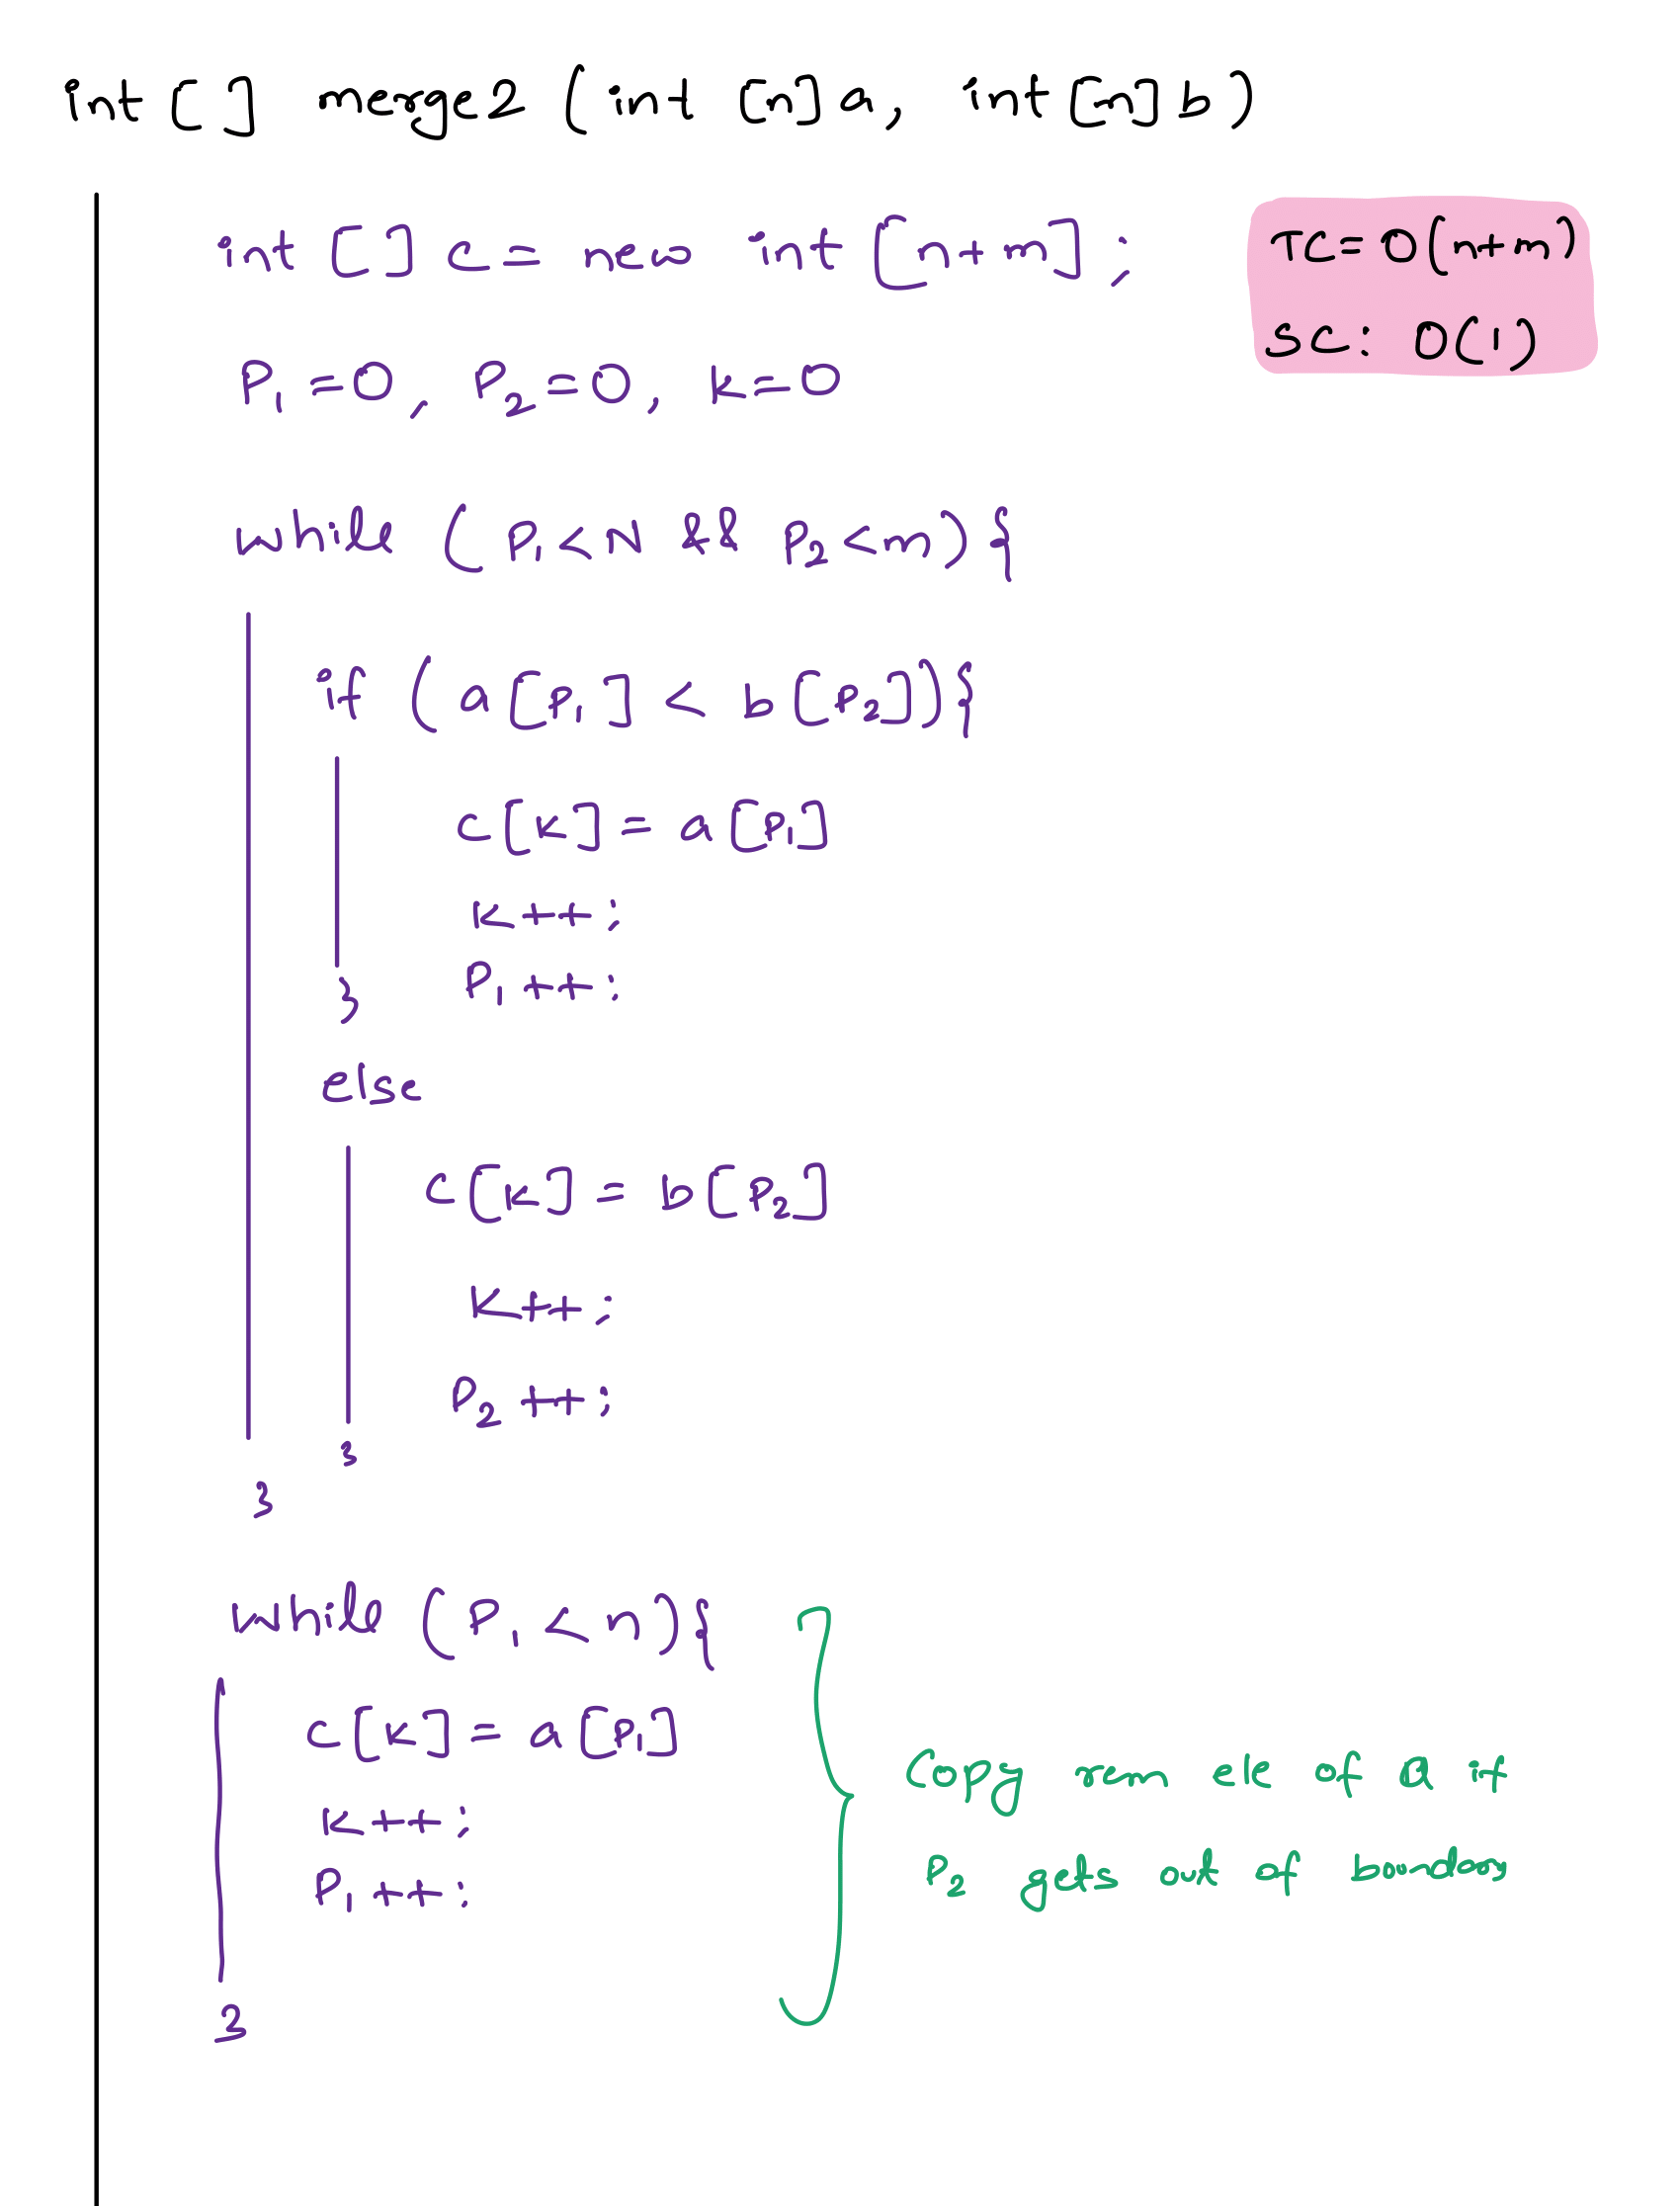 int [ ] merge2 ( int [n] a, int [m] b )
int [ ] c = new int [n+m] ;
TC = O(n+m)
SC : O(1)
P1 = 0, P2 = 0, k = 0
while ( P1 < N && P2 < m ) {
if ( a[P1] < b[P2] ) {
c[k] = a[P1]
k++ ;
P1 ++ ;
}
else
c[k] = b[P2]
k++ ;
P2 ++ ;
}
}
while ( P1 < n ) {
c[k] = a[P1]
k++ ;
P1 ++ ;
}
Copy rem ele of a if
P2 gets out of